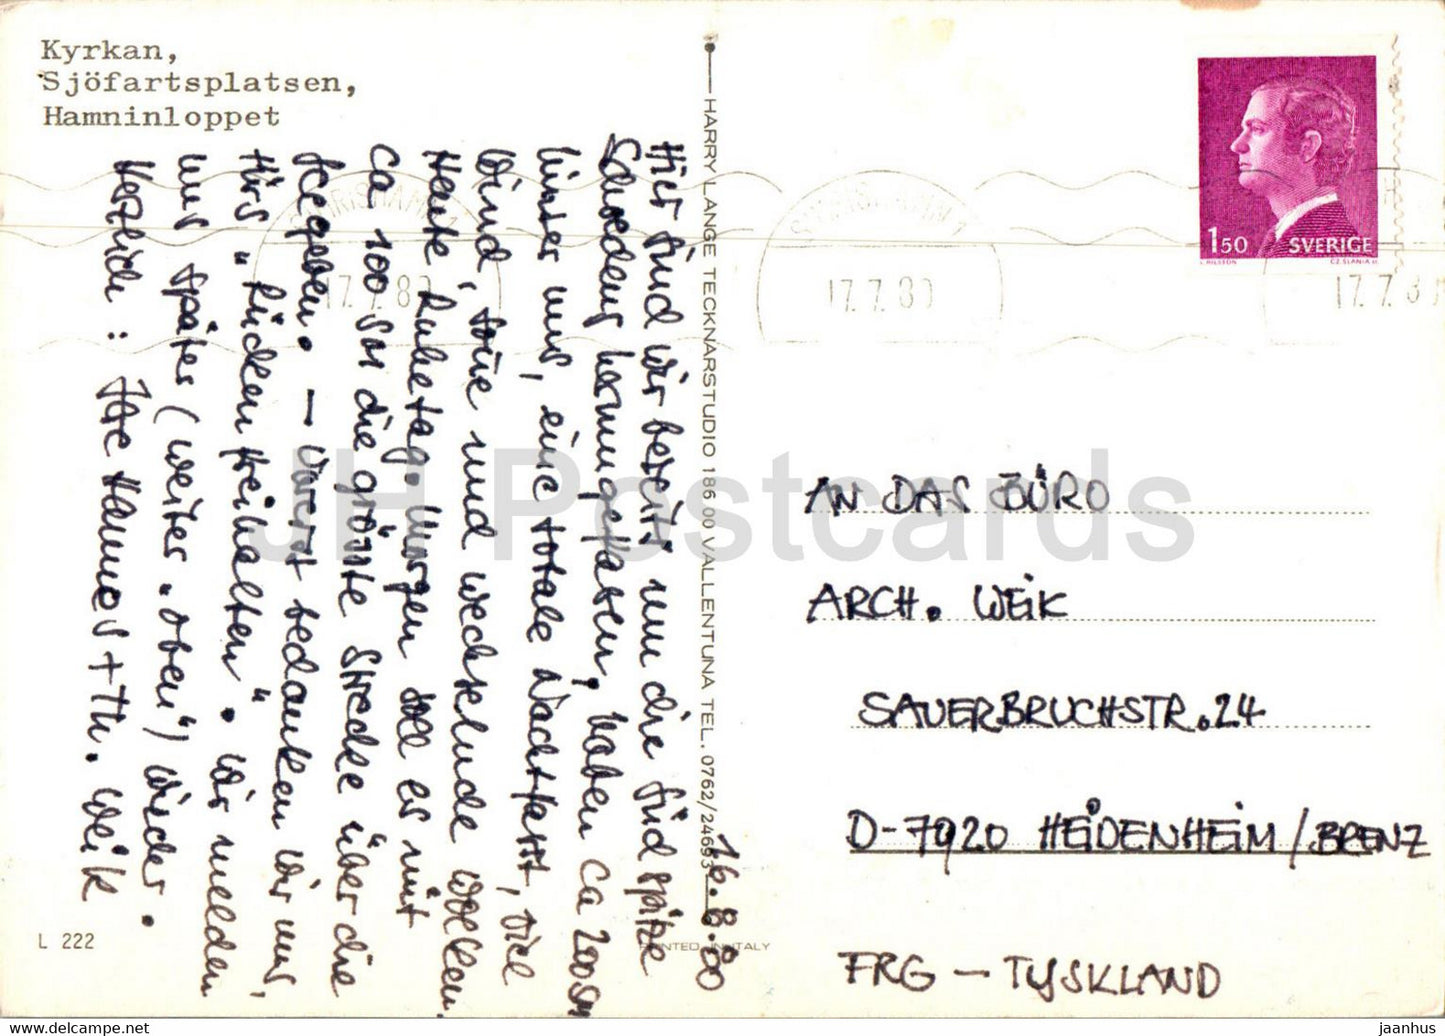 Kyrkan,
Sjöfartsplatsen,
Hamninloppet
HARRY LANGE TECKNARSTUDIO 186 00 VALLENTUNA TEL. 0762/24693
1.50 SVERIGE
L. NILSSON CZ. SLANIA SC.
17.7.80
17.7.80
17.7.80
16.8.80
Hier sind wir bereits um die Südspitze
Schwedens herumgefahren, haben ca 200 sm
hinter uns, eine totale Nachtfahrt, viel
Wind, Sonne und wechselnde Wolken.
Heute, Ruhetag. Morgen soll es mit
ca 100 sm die größte Strecke über die
See geben. – Vorerst bedanken wir uns,
fürs "Rücken freihalten". Wir melden
uns später (weiter "oben") wieder.
Herzlich: Ihre Hannos + Th. Weik
AN DAS BÜRO
ARCH. WEIK
SAUERBRUCHSTR. 24
D-7920 HEIDENHEIM/BRENZ
FRG – TYSKLAND
L 222
PRINTED IN ITALY
JH Postcards
jaanhus